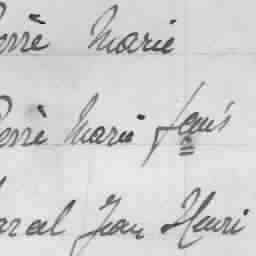 erre Marie
erre Marie Louis
arcel Jean Henri